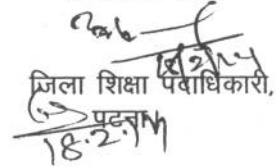 18/2/14
जिला शिक्षा पदाधिकारी,
पटना
18.2.14